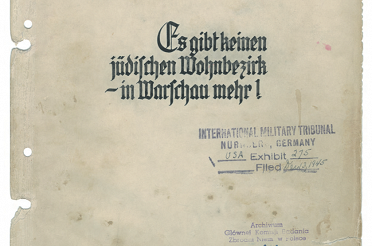 Es gibt keinen
jüdischen Wohnbezirk
– in Warschau mehr!
INTERNATIONAL MILITARY TRIBUNAL
NURNBERG, GERMANY
USA Exhibit 275
Filed
Archiwum
Głównej Komisji Badania
Zbrodni Niem. w Polsce